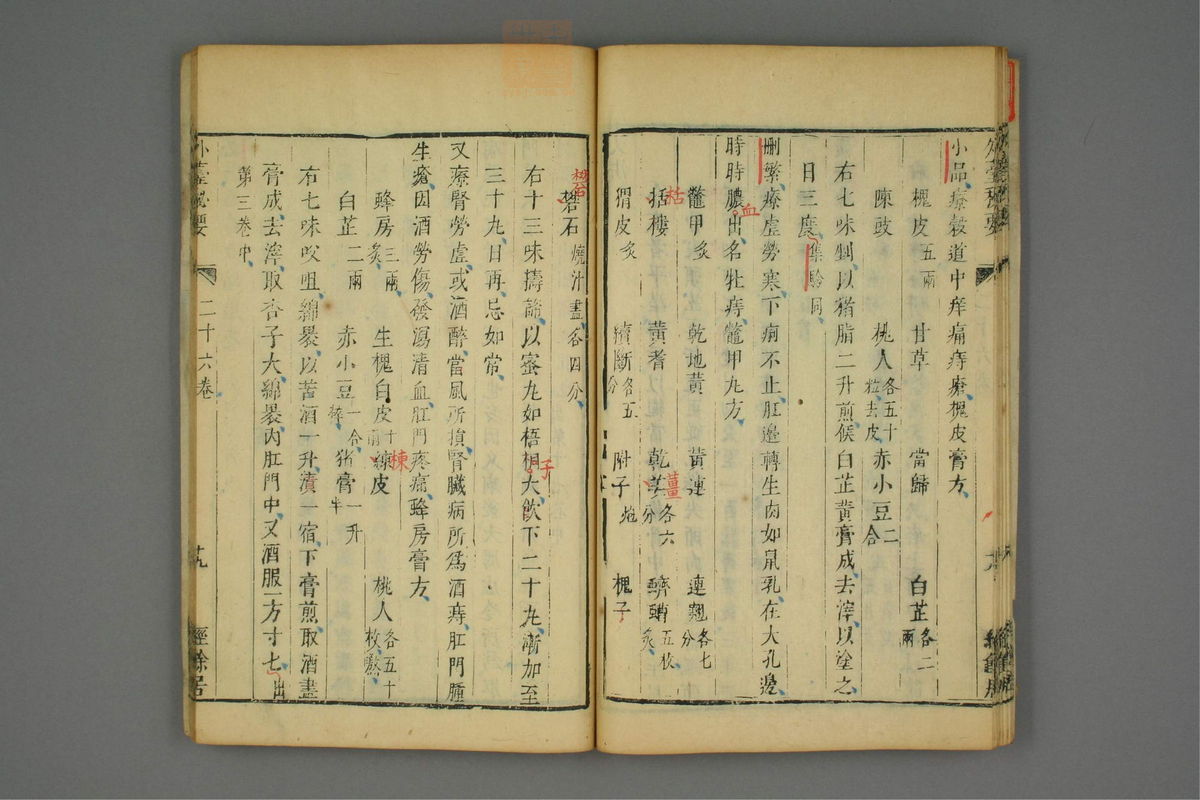 小品療穀道中痒痛痔瘡槐皮膏方
槐皮五兩 甘草 當歸 白芷各二兩
陳豉 桃人各五十粒去皮 赤小豆二合
右七味剉以猪脂二升煎候白芷黃膏成去滓以塗之
日三度集驗同
刪繁療虛勞寒下痢不止肛邊轉生肉如鼠乳在大孔邊
時時膿血出名牡痔鼈甲丸方
鼈甲炙 乾地黃 黃連 連翹各七分
括樓 栝 黃耆 乾姜 薑 各六分 蠐螬五枚炙
猬皮炙 續斷各五分 附子炮 槐子
礬石燒汁盡各四分
右十三味擣篩以蜜丸如梧桐子大飲下二十丸漸加至
三十丸日再忌如常
又療腎勞虛或酒醉當風所損腎臟病所爲酒痔肛門腫
生瘡因酒勞傷發瀉清血肛門疼痛蜂房膏方
蜂房三兩炙 生槐白皮十兩 楝皮 桃人各五十枚熬
白芷二兩 赤小豆一合碎 猪膏一升半
右七味㕮咀綿裹以苦酒一升漬一宿下膏煎取酒盡
膏成去滓取杏子大綿裹內肛門中又酒服一方寸匕出
第三卷中
外臺秘要 二十六卷 十九 經餘居